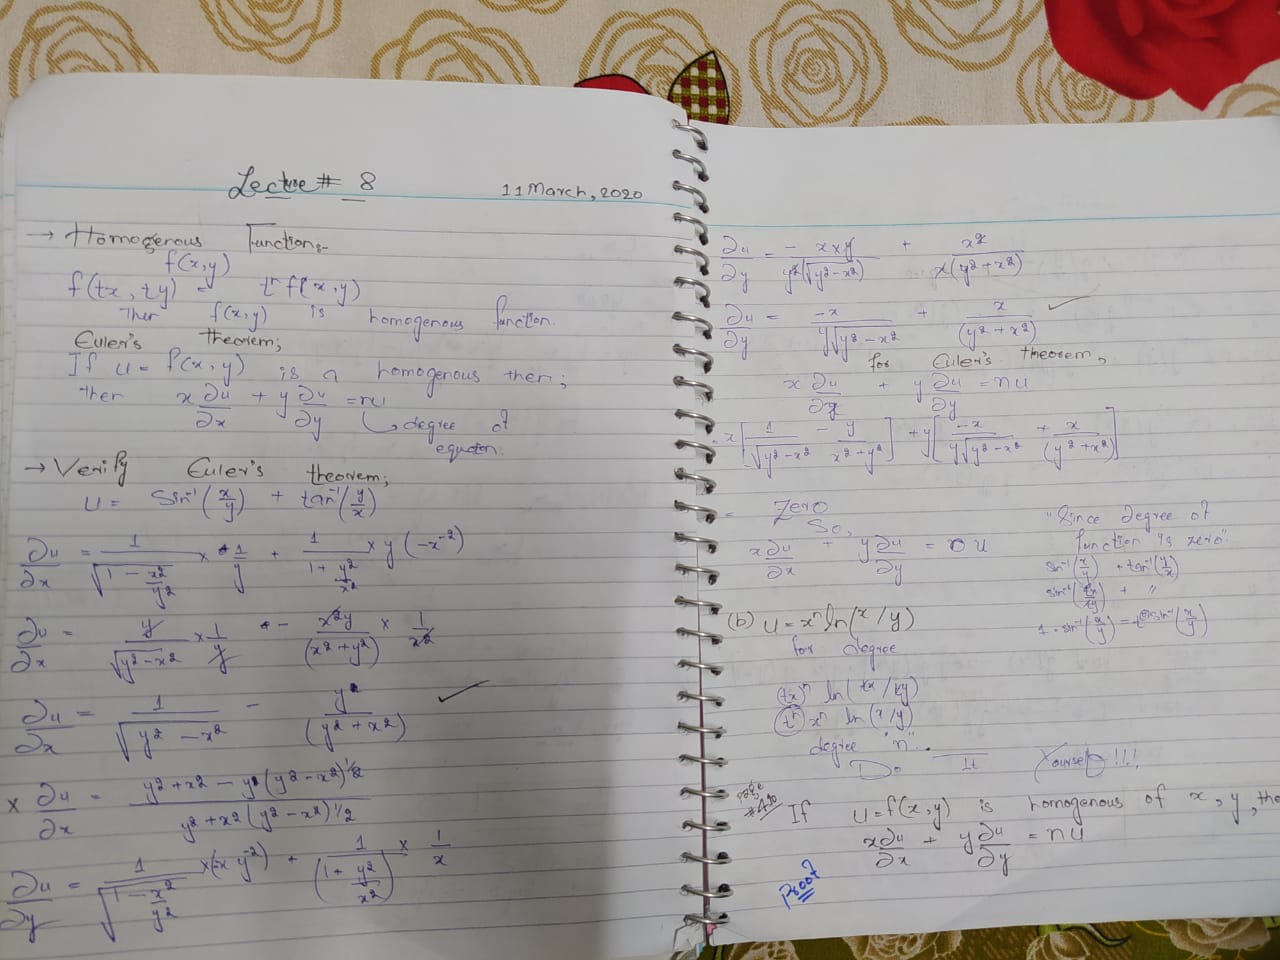 Lecture # 8
11 March, 2020
→ Homogenous Function:-
f(x,y)
f(tx, ty) = tⁿ f(x,y)
Then f(x,y) is homogenous function.
Euler's theorem;
If u = f(x,y) is a homogenous then;
Then x ∂u/∂x + y ∂u/∂y = nu
↳ degree of
equation.
→ Verify Euler's theorem;
u = Sin⁻¹(x/y) + tan⁻¹(y/x)
∂u/∂x = 1/√(1 - x²/y²) × 1/y + 1/(1 + y²/x²) × y(-x⁻²)
∂u/∂x = y/√(y²-x²) × 1/y - x²y/(x²+y²) × 1/x²
∂u/∂x = 1/√(y² - x²) - y/(y² + x²) ✓
× ∂u/∂x = y² + x² - y(y² - x²)^1/2 / y² + x² (y² - x²)^1/2
∂u/∂y = 1/√(1 - x²/y²) × (-x y⁻²) + 1/(1 + y²/x²) × 1/x
∂u/∂y = - x × y / y²(√(y² - x²)) + x² / x(y² + x²)
∂u/∂y = -x / y√(y² - x²) + x / (y² + x²) ✓
for Euler's theorem,
x ∂u/∂x + y ∂u/∂y = nu
= x[1/√(y² - x²) - y/(x² + y²)] + y[-x/(y√(y² - x²)) + x/(y² + x²)]
= Zero
So,
x ∂u/∂x + y ∂u/∂y = 0 u
"Since degree of
function is zero"
sin⁻¹(x/y) + tan⁻¹(y/x)
sin⁻¹(tx/ty) + "
1 · sin⁻¹(x/y) = t⁰ sin⁻¹(x/y)
(b) u = xⁿ ln(x/y)
for degree
(tx)ⁿ ln(tx/ty)
(tⁿ) xⁿ ln(x/y)
degree "n".
Do It Yourself!!!
If u = f(x,y) is homogenous of x, y, the
x ∂u/∂x + y ∂u/∂y = nu
Proof